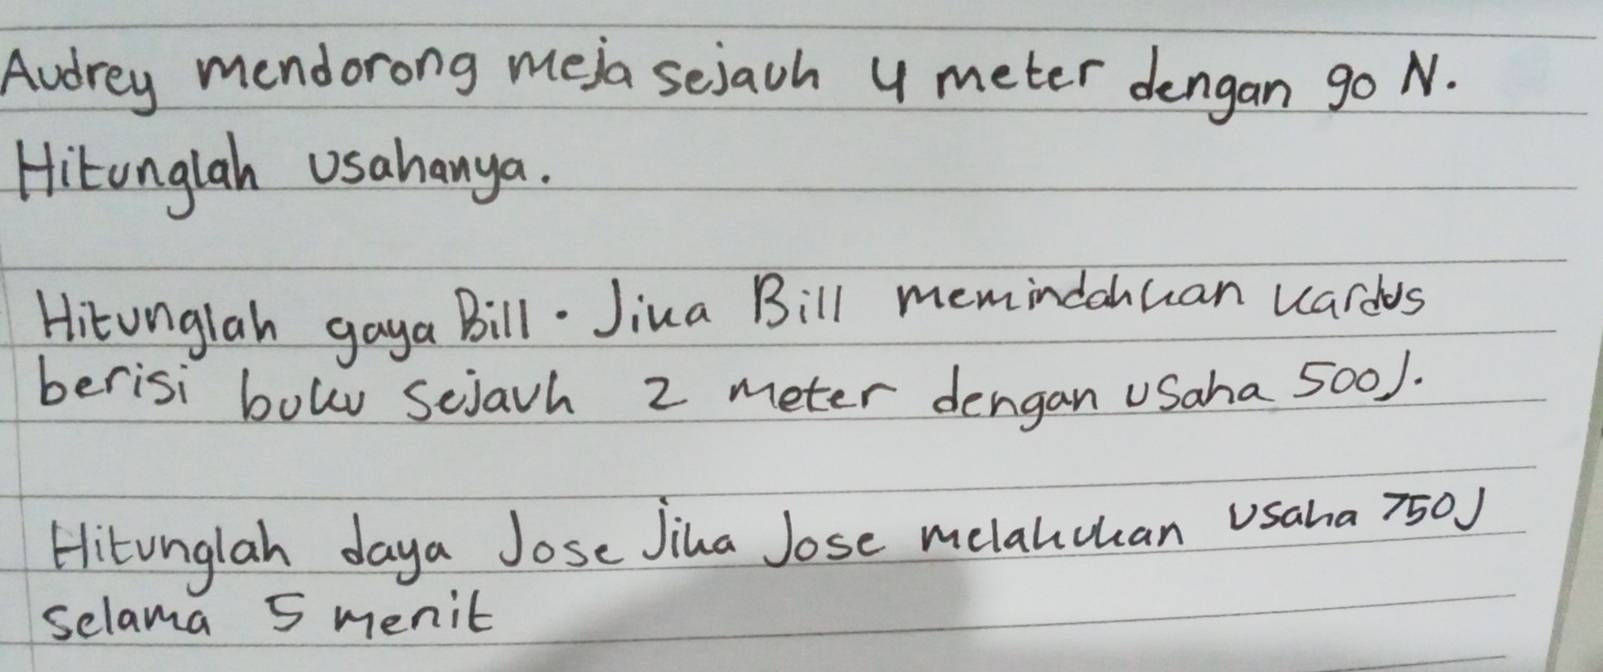 Audrey mendorong meja sejauh 4 meter dengan 90 N.
Hitunglah usahanya.
Hitunglah gaya Bill. Jika Bill memindahkan kardus
berisi buku sejauh 2 meter dengan usaha 500J.
Hitunglah daya Jose Jika Jose melakukan usaha 750J
selama 5 menit